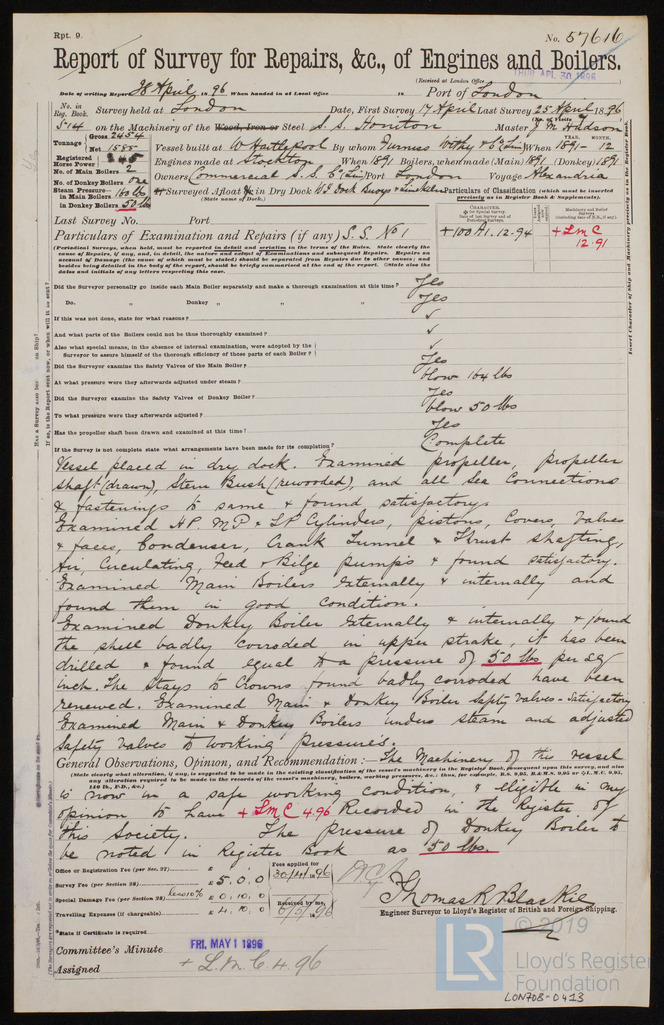 Rpt. 9.
No. 57616
Report of Survey for Repairs, &c., of Engines and Boilers.
(Received at London Office
THUR APL 30 1896
Date of writing Report 28 April 1896 When handed in at Local Office 18 Port of London
No. in Reg. Book. Survey held at London Date, First Survey 17 April Last Survey 25 April 1896
(No. of Visits
514 on the Machinery of the Wood, Iron or Steel S. S. Honiton Master J. M. Hudson
Tonnage Gross 2454 Net 1585
YEAR. MONTH.
Vessel built at W Hartlepool By whom Furness Withy & Co Lim When 1891 - 12
Registered Horse Power 245
Engines made at Stockton When 1891 Boilers, when made (Main) 1891 (Donkey) 1891
No. of Main Boilers 2
No. of Donkey Boilers one
Owners Commercial S. S. Co Lim Port London Voyage Alexandria
Steam Pressure in Main Boilers 160 lbs
in Donkey Boilers 50 lbs
If Surveyed Afloat or in Dry Dock
(State name of Dock.)
Particulars of Classification (which must be inserted precisely as in Register Book & Supplements).
Last Survey No. Port
Particulars of Examination and Repairs (if any) S. S. No 1
+100A1. 12-94
+LMC 12.91
(Periodical Surveys, when held, must be reported in detail and seriatim in the terms of the Rules. State clearly the cause of Repairs, if any, and, in detail, the nature and extent of Examinations and subsequent Repairs. Repairs on account of Damage (the cause of which must be stated) should be separated from Repairs due to other causes; and besides being detailed in the body of the report, should be briefly summarised at the end of the report. State also the dates and initials of any letters respecting this case.
Did the Surveyor personally go inside each Main Boiler separately and make a thorough examination at this time? Yes
Do. " Donkey " " " Yes
If this was not done, state for what reasons? ✓
And what parts of the Boilers could not be thus thoroughly examined? ✓
Also what special means, in the absence of internal examination, were adopted by the Surveyor to assure himself of the thorough efficiency of those parts of each Boiler? ✓
Did the Surveyor examine the Safety Valves of the Main Boiler? Yes
At what pressure were they afterwards adjusted under steam? blow 164 lbs
Did the Surveyor examine the Safety Valves of Donkey Boiler? Yes
To what pressure were they afterwards adjusted? blow 50 lbs
Has the propeller shaft been drawn and examined at this time? Yes
If the Survey is not complete state what arrangements have been made for its completion? Complete
Vessel placed in dry dock. Examined propeller, propeller
shaft (drawn), Stern Bush (rewooded), and all Sea Connections
& fastenings to same & found satisfactory
Examined H.P. M.P & L.P Cylinders, pistons, Covers, Valves
& faces, Condenser, Crank Tunnel & Thrust Shafting,
Air, Circulating, Feed & Bilge pumps & found satisfactory.
Examined Main Boilers externally & internally and
found them in good condition.
Examined Donkey Boiler externally & internally & found
the shell badly corroded in upper strake, it has been
drilled & found equal to a pressure of 50 lbs per sq
inch. The Stays to Crowns found badly corroded have been
renewed. Examined Main & Donkey Boiler Safety Valves - Satisfactory
Examined Main & Donkey Boilers under steam and adjusted
Safety valves to working pressures.
General Observations, Opinion, and Recommendation:— The Machinery of this vessel
(State clearly what alteration, if any, is suggested to be made in the existing classification of the vessel's machinery in the Register Book, consequent upon this survey, and also any alteration required to be made in the records of the vessel's machinery, boilers, working pressures, &c.; thus, for example, B.S. 9,95, B.&M.S. 9,95 or L.M.C. 9,95, 110 lb., F.D., &c.)
is now in a safe working condition, & eligible in my
opinion to have + LMC 4.96 Recorded in the Register of
this Society. The pressure of Donkey Boiler to
be noted in Register Book as 50 lbs.
Office or Registration Fee (per Sec. 27)
Survey Fee (per Section 28) £ 5. 0. 0
Special Damage Fee (per Section 28) less 10% £ 0. 10. 0
Travelling Expenses (if chargeable) £ 4. 10. 0
Fees applied for 30/4/1896
Received by me, 6/5/1896
Thomas R Blackie
Engineer Surveyor to Lloyd's Register of British and Foreign Shipping.
*State if Certificate is required
Committee's Minute FRI. MAY 1 1896
Assigned + L. M. C. 4. 96
© 2019
LR
Lloyd's Register Foundation
LON708-0413
Insert Character of Ship and Machinery precisely as in the Register Book.